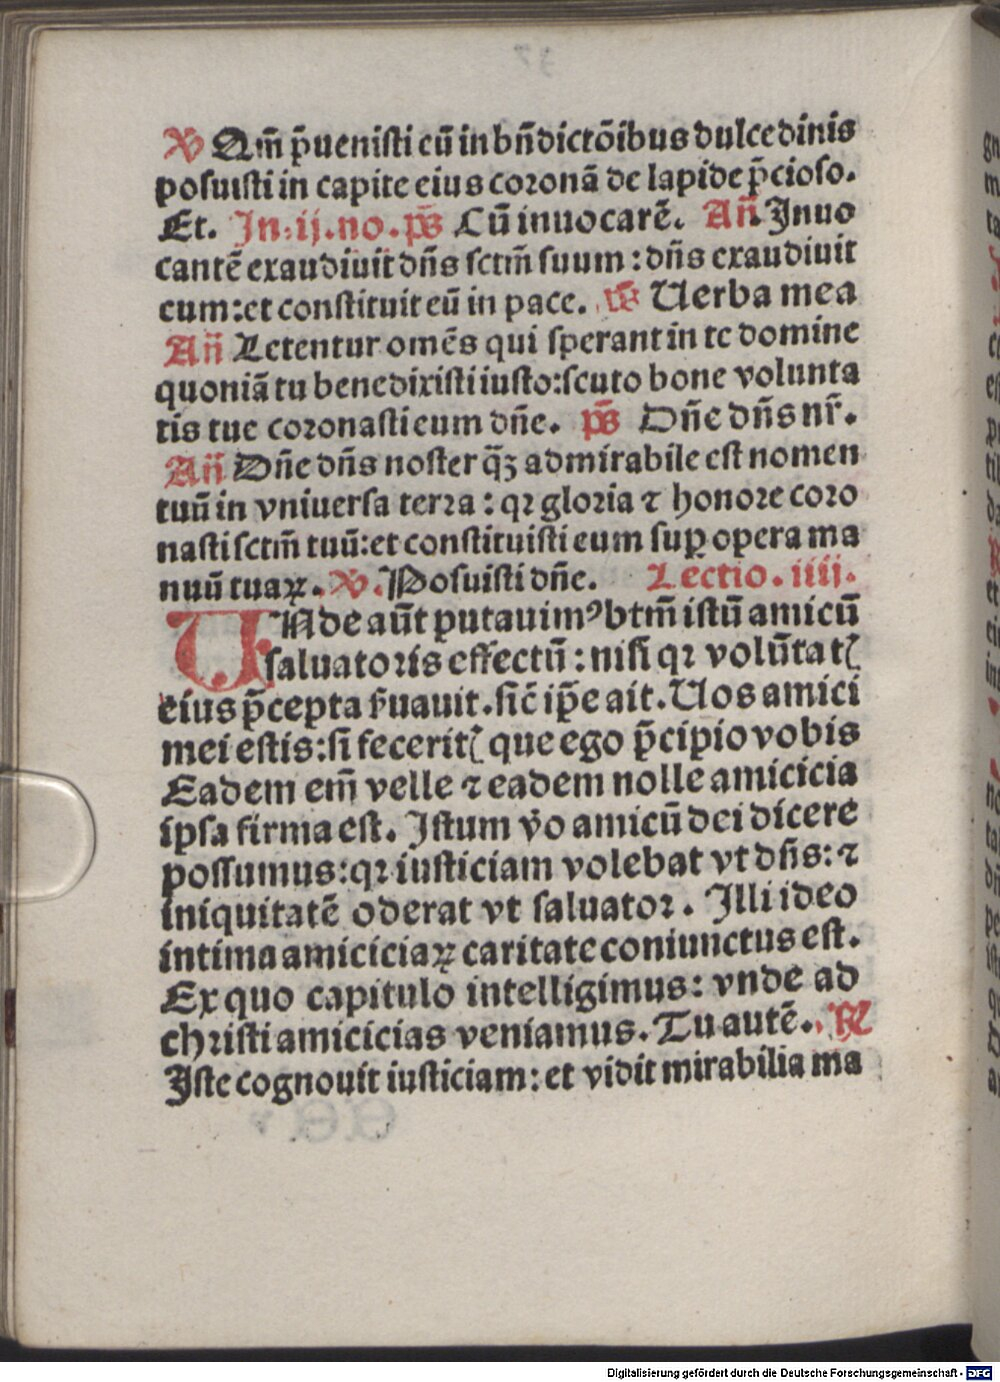 ℣ Qm̄ p̄uenisti eū in bn̄dictōibus dulcedinis
posuisti in capite eius coronā de lapide p̄cioso.
Et. In.ij.no.ps̄ Cū inuocarē. An̄ Inuo
cantē exaudiuit dn̄s sctm̄ suum: dn̄s exaudiuit
eum: et constituit eū in pace. ps̄ Uerba mea
An̄ Letentur omēs qui sperant in te domine
quoniā tu benedixisti iusto: scuto bone volunta
tis tue coronasti eum dn̄e. ps̄ Dn̄e dn̄s nr̄.
An̄ Dn̄e dn̄s noster q̄ꝫ admirabile est nomen
tuū in vniuersa terra: qr gloria ⁊ honore coro
nasti sctm̄ tuū: et constituisti eum sup̲ opera ma
nuū tuaꝝ. ℣. Posuisti dn̄e. Lectio. iiij.
UNde aūt putauimꝰ btm̄ istū amicū
saluatoris effectū: nisi qr volūtatꝭ
eius p̄cepta s̄uauit. sic̄ ip̄e ait. Uos amici
mei estis: si feceritꝭ que ego p̄cipio vobis
Eadem em̄ velle ⁊ eadem nolle amicicia
ipsa firma est. Istum v̄o amicū dei dicere
possumus: qr iusticiam volebat vt dn̄s: ⁊
iniquitatē oderat vt saluator. Illi ideo
intima amiciciaꝝ caritate coniunctus est.
Ex quo capitulo intelligimus: vnde ad
christi amicicias veniamus. Tu autē. ℟
Iste cognouit iusticiam: et vidit mirabilia ma
Digitalisierung gefördert durch die Deutsche Forschungsgemeinschaft - DFG